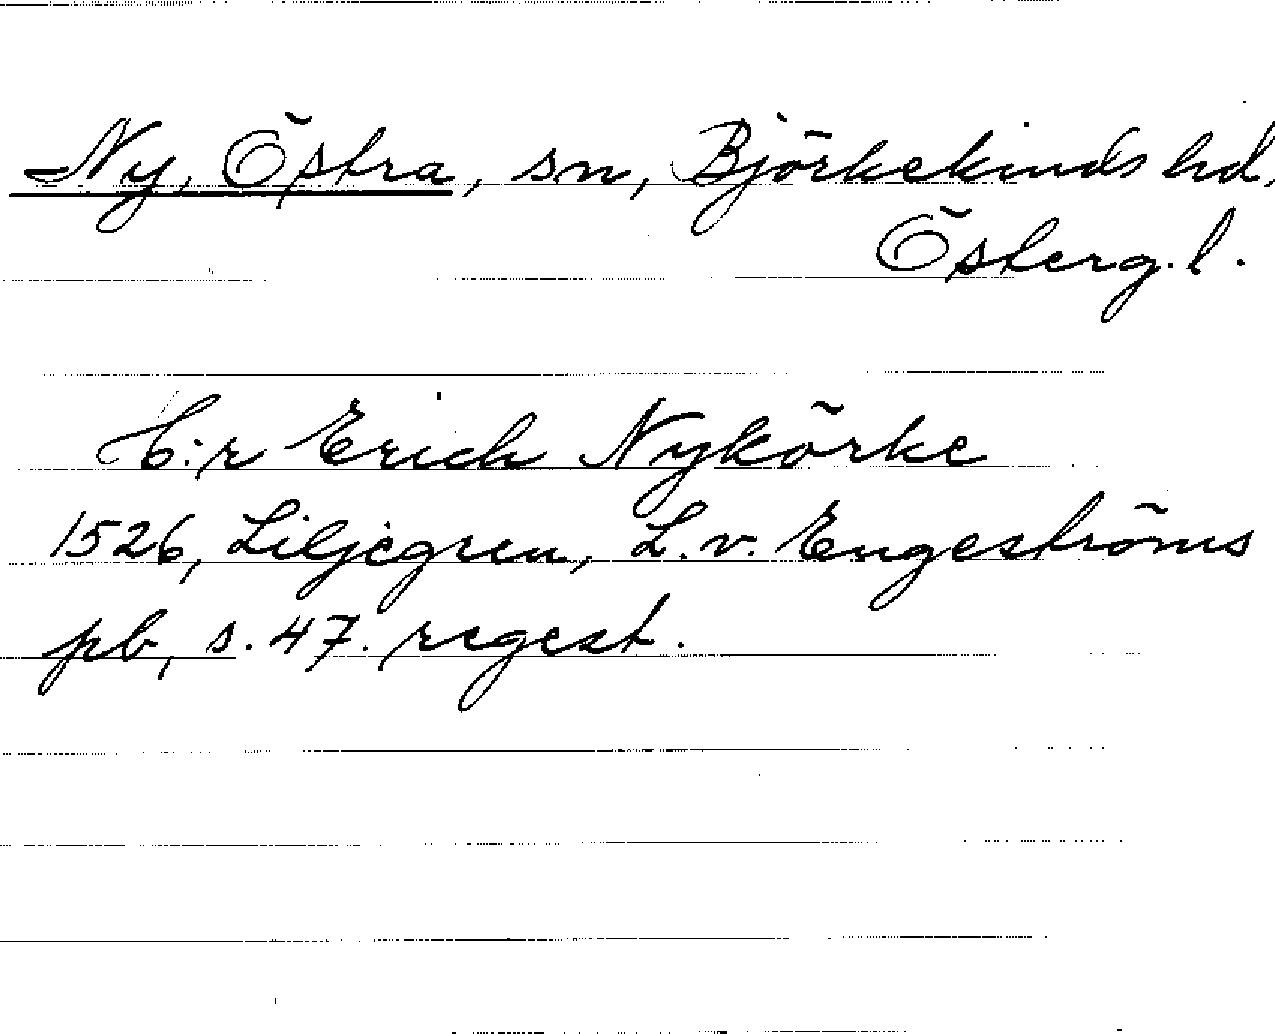 Ny, Östra, sn, Björkekinds hd,
Österg. l.
H:r Erich Nykörke
1526, Liljegren, L. v. Engeströms
pb, s. 47. regest.